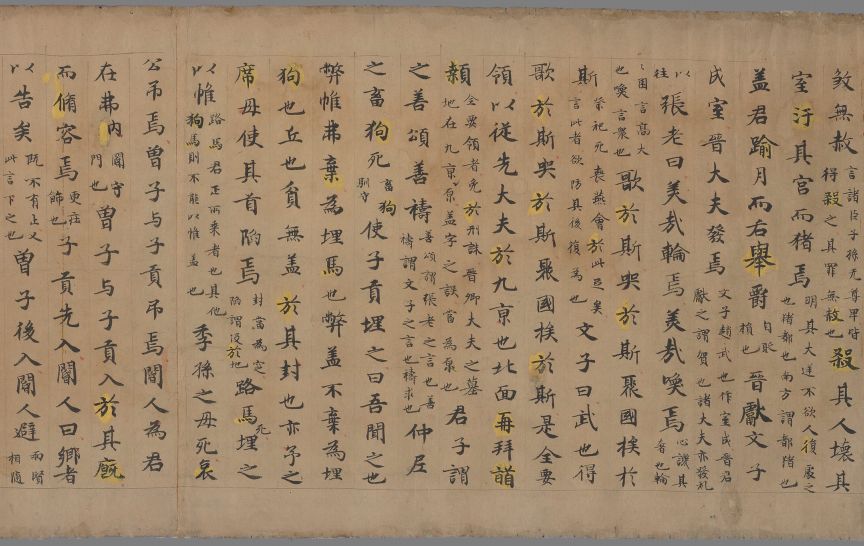 煞無赦言諸臣子孫无尊卑皆得殺之其罪無赦也殺其人壞其
室汙其宫而猪焉明其大逆不欲人復處之也猪都也南方謂都猪也
盖君踰月而右舉爵自貶損也晉獻文子
成室晉大夫發焉文子趙武也作室成晉君獻之謂賀也諸大夫亦發礼
以往張老曰美哉輪焉美哉喚焉心譏其奢也輪
〻囷言高大也喚言衆也歌於斯哭於斯聚國挨於
斯祭祀死喪燕會於此足矣言此者欲防其後復為也文子曰武也得
歌於斯哭於斯聚國挨於斯是全要
領以從先大夫於九京也北面再拜䭫
顙全要領者免於刑誅晉卿大夫之墓地在九京京盖字之誤當為原也君子謂
之善頌善禱善頌謂張老之言也善禱謂文子之言也禱求也仲尼
之畜狗死畜狗馴守使子貢埋之曰吾聞之也
弊帷弗棄為埋馬也弊盖不棄為埋
狗也丘也貧無盖於其封也亦予之
席毋使其首陷焉封當為窆陷謂没於地路馬死埋之
以帷路馬君正所乗者也其他狗馬則不能以帷盖也季孫之母死哀
公吊焉曽子与子貢吊焉閽人為君
在弗内閽守門也曽子与子貢入於其廐
而脩容焉更莊飾也子貢先入閽人曰鄉者
以告矣既不有止又此言下之也曽子後入閽人避兩臂相随